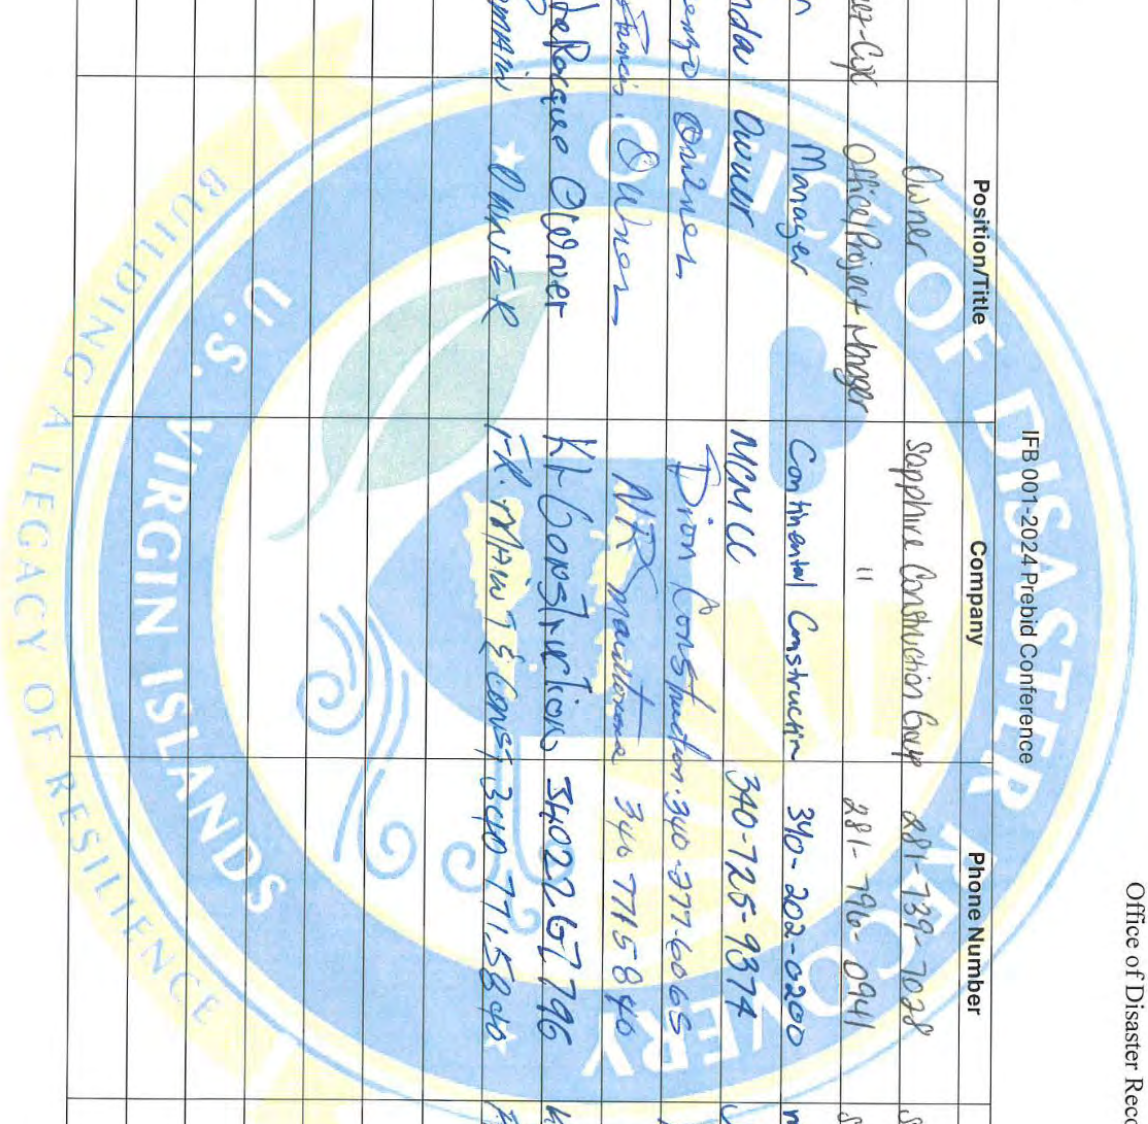 Office of Disaster Reco
IFB 001-2024 Prebid Conference
Position/Title Company Phone Number
Owner Sapphire Construction Group 281-739-7028
Office/Project Manager " 281-796-0941
Manager Continental Construction 340-202-0200
nda Owner MCMCC 340-725-9374
enzo Owner Dion Construction 340-277-6065
Francis Owner NTR 340 7715840
LaRocque Owner Construction 3402267796
OWNER FR. MAINT & CONST 340-7715840
OFFICE OF DISASTER RECOVERY
U.S. VIRGIN ISLANDS
BUILDING A LEGACY OF RESILIENCE